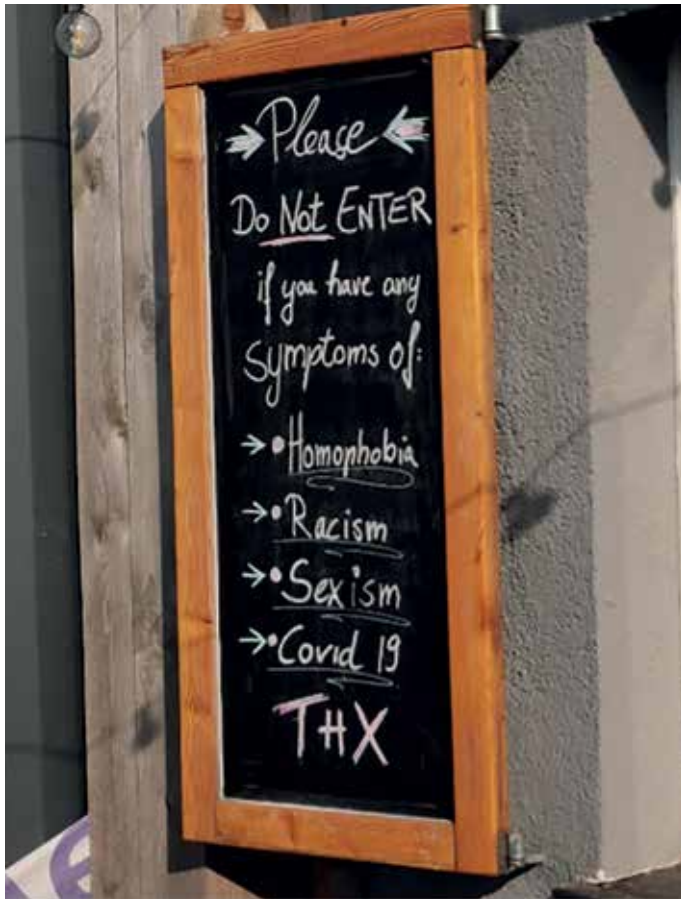 Please
Do Not ENTER
if you have any
symptoms of:
→ • Homophobia
→ • Racism
→ • Sexism
→ • Covid 19
THX